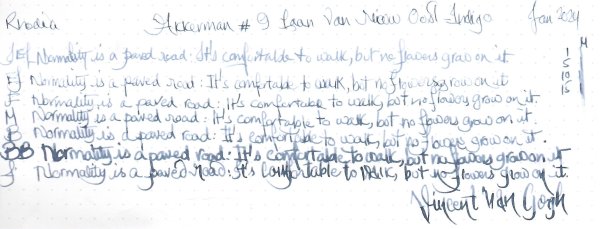 Rhodia Akkerman # 9 Laan Van Nieuw Oost Indigo Jan 2024
JEF Normality is a paved road: It's comfortable to walk, but no flowers grow on it
EF Normality is a paved road: It's comfortable to walk, but no flowers grow on it
F Normality is a paved road: It's comfortable to walk, but no flowers grow on it.
M Normality is a paved road: It's comfortable to walk, but no flowers grow on it.
B Normality is a paved road: It's comfortable to walk, but no flowers grow on it.
BB Normality is a paved road: It's comfortable to walk, but no flowers grow on it
J Normality is a paved road: It's comfortable to walk, but no flowers grow on it.
Vincent Van Gogh
M
5
10
15